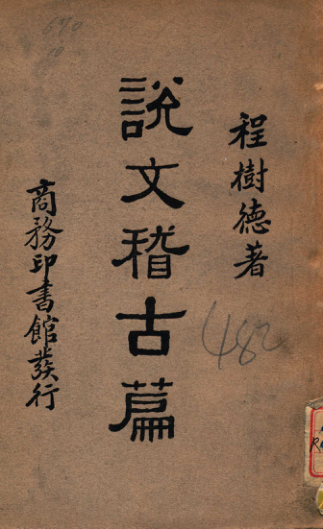 程樹德著
說文稽古篇
商務印書館發行
482